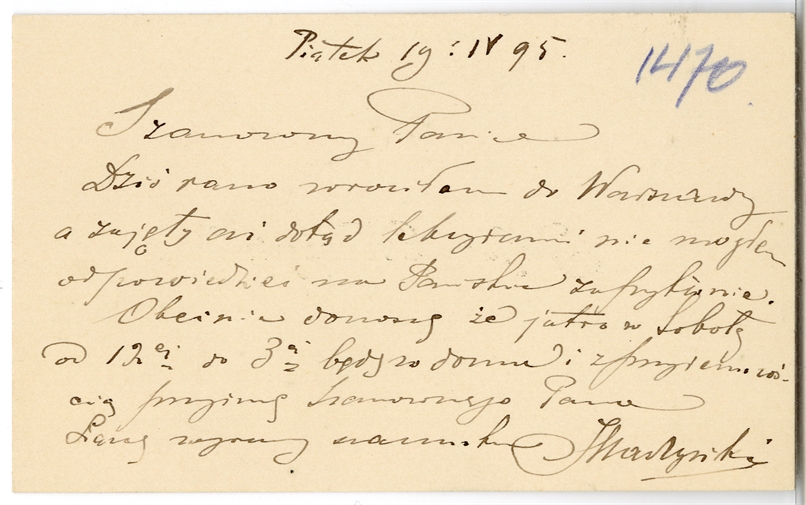 Piątek 19: IV 95.
1470
Szanowny Panie
Dziś rano wróciłem do Warszawy
a zajęty aż dotąd lekcyami nie mogłem
odpowiedzieć na Pańskie zapytanie.
Obecnie donoszę że jutro w Sobotę
od 12ej do 3ej będę w domu i z przyjemnoś-
cią przyjmę Szanownego Pana
Łączę wyrazy szacunku